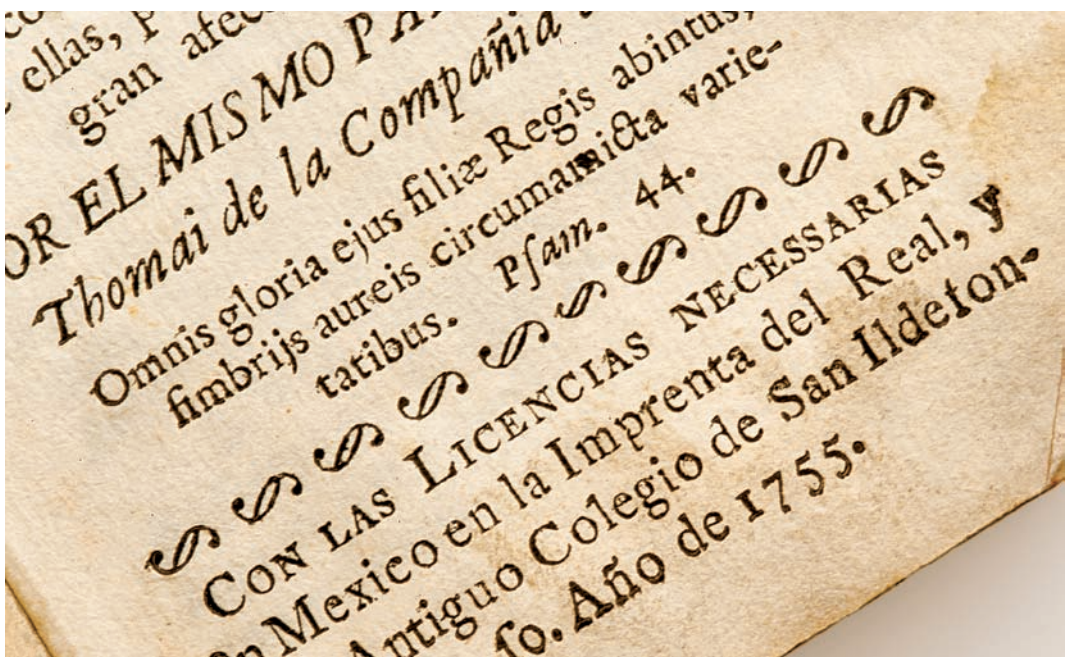 ellas, p
gran afec
OR EL MISMO PA
Thomai de la Compañia
Omnis gloria ejus filiæ Regis abintus,
fimbrijs aureis circumamicta varie-
tatibus. Pſam. 44.
CON LAS LICENCIAS NECESSARIAS
En Mexico en la Imprenta del Real, y
Antiguo Colegio de San Ildefon-
ſo. Año de 1755.